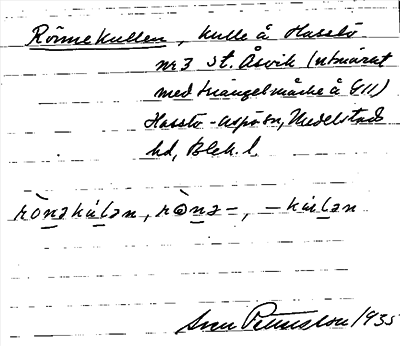 Rönnekullen, kulle å Hasslö
nr 3 St. Åsvik (utmärat
med triangelmärke å GII)
Hasslö-Aspö sn, Medelstads
hd, Blek. l.
rònəkúlən, rònə-, -kúlən
Sven Pettersson 1935